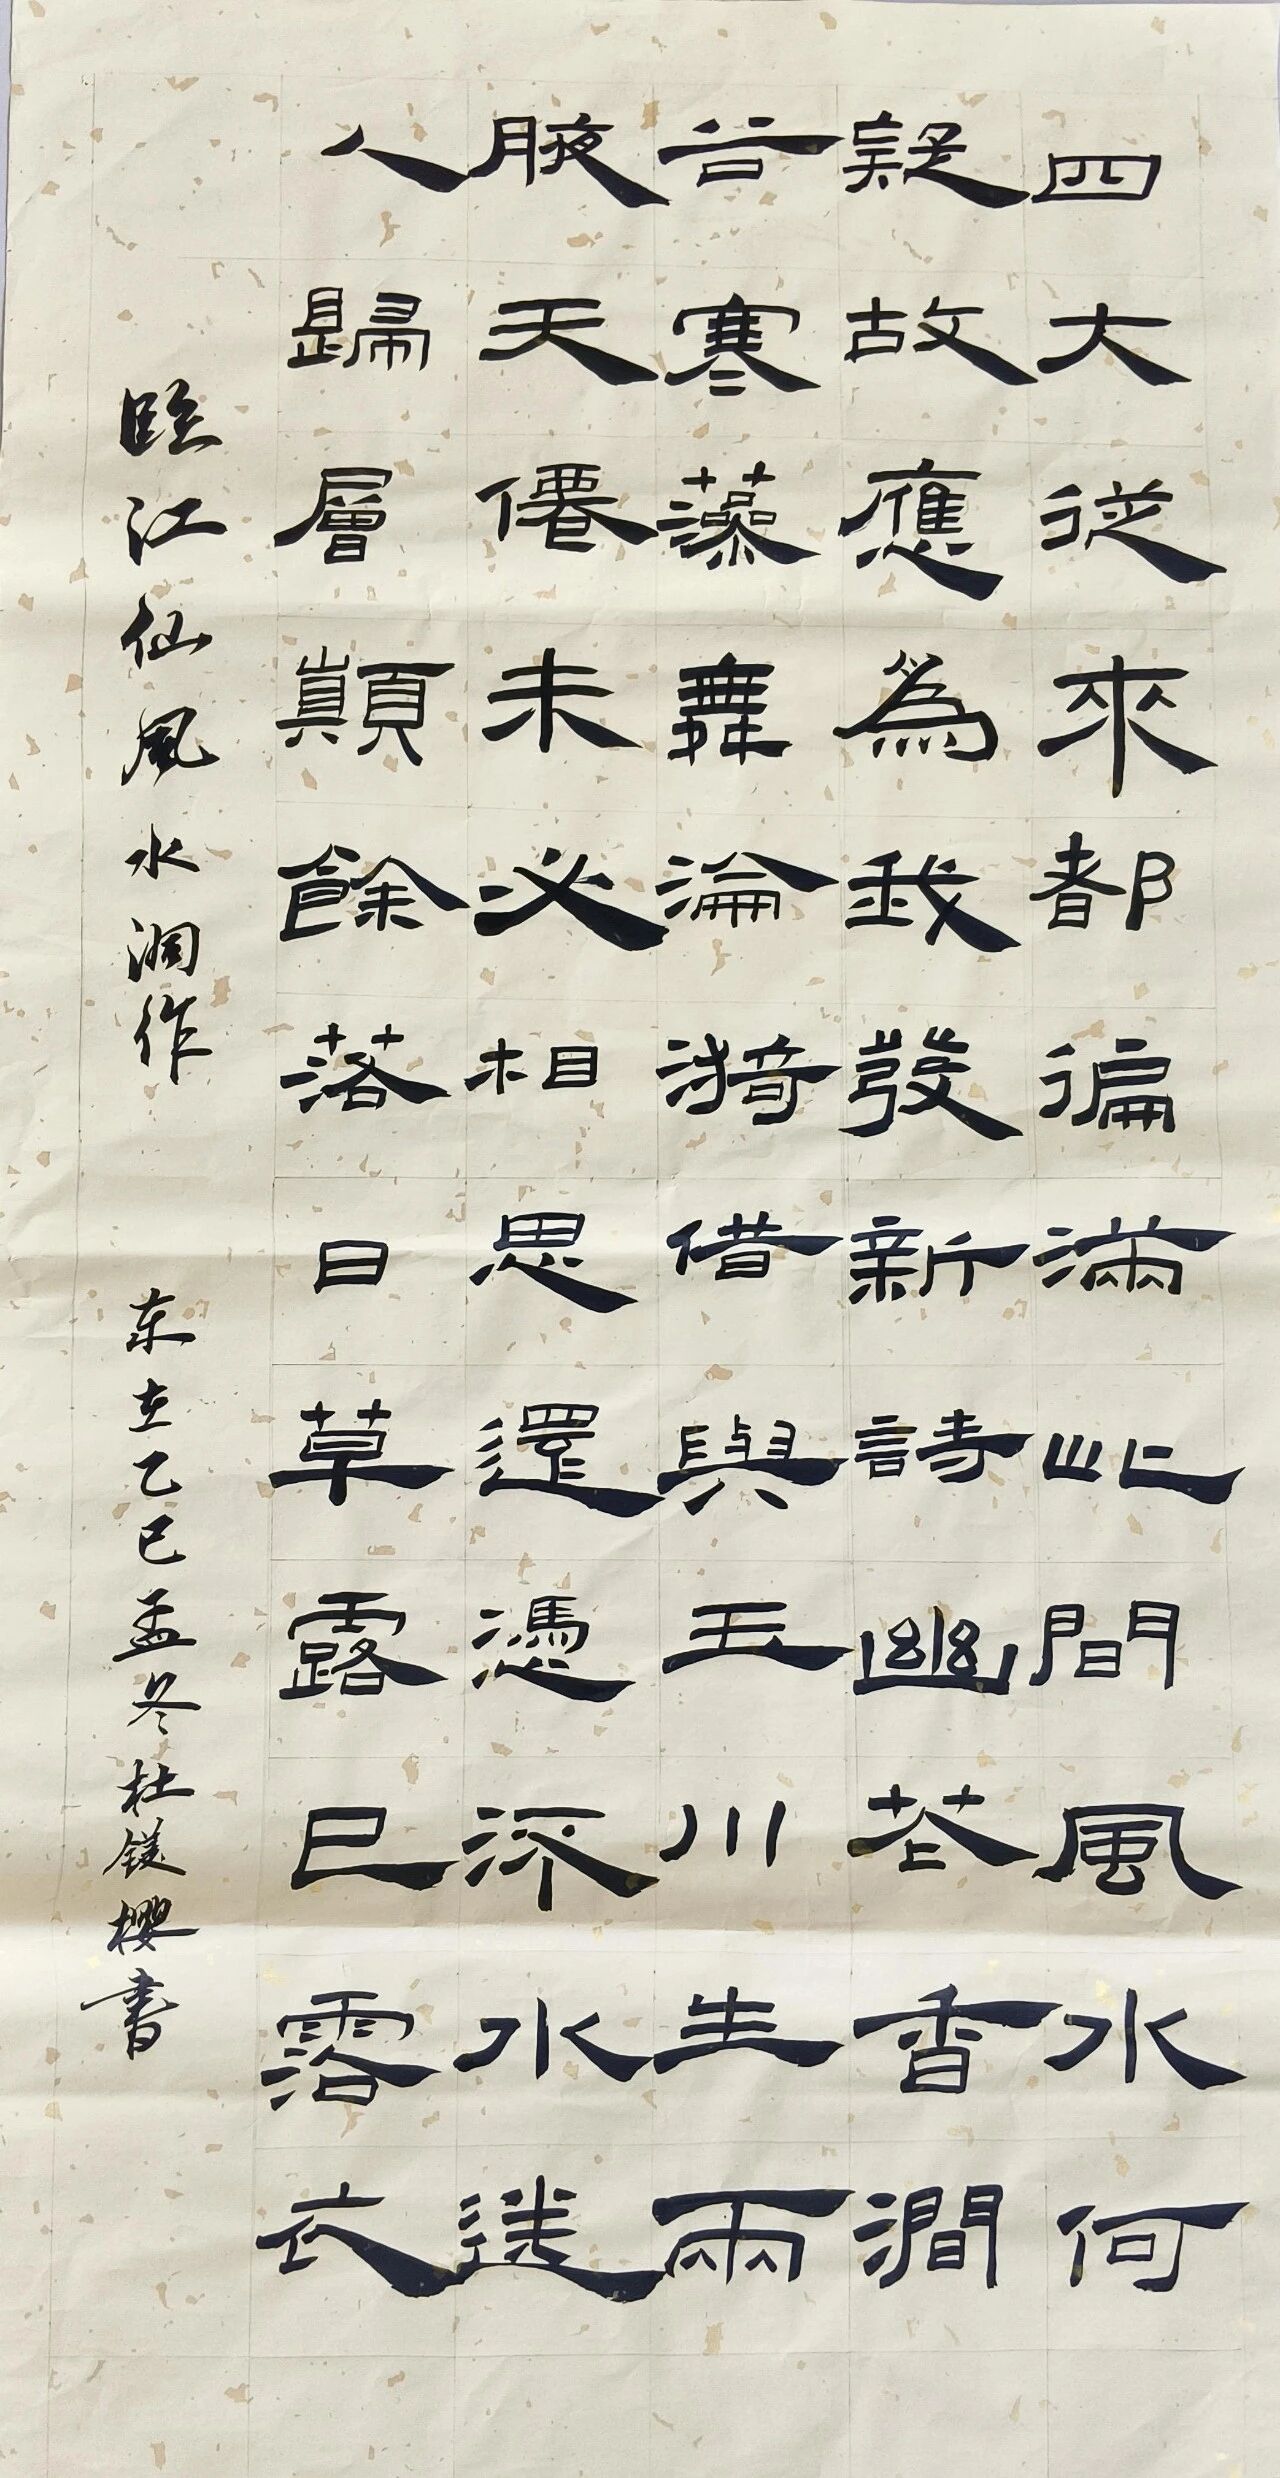 四大從來都徧滿此間風水何
疑故應為我發新詩幽花香澗
谷寒藻舞淪漪借與玉川生兩
腋天僊未必相思還憑流水送
人歸層顛餘落日草露已霑衣
臨江仙風水洞作
歲在乙巳孟冬杜鎂櫻書